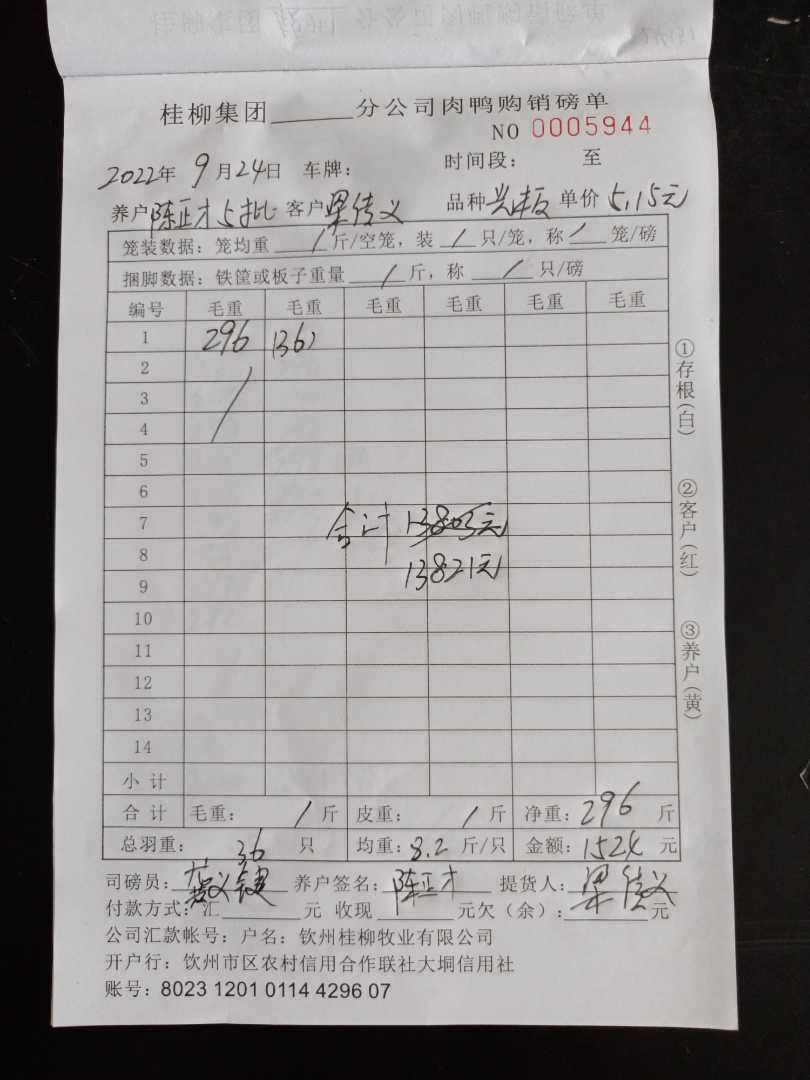 桂柳集团______分公司肉鸭购销磅单
NO 0005944
2022年 9月24日 车牌： 时间段： 至
养户 陈正才5批 客户 梁传义 品种 单价 5.15元
笼装数据：笼均重 / 斤/空笼，装 / 只/笼，称 / 笼/磅
捆脚数据：铁筐或板子重量 / 斤，称 / 只/磅
编号 毛重 毛重 毛重 毛重 毛重 毛重
1 296
2
3
4
5
6
7 合计 13803元
8 13821元
9
10
11
12
13
14
小计
合计 毛重： / 斤 皮重： / 斤 净重：296 斤
总羽重： 36 只 均重：8.2 斤/只 金额：1524 元
司磅员： 养户签名：陈正才 提货人：梁传义
付款方式：汇______元 收现______元欠（余）：______元
公司汇款帐号：户名：钦州桂柳牧业有限公司
开户行：钦州市区农村信用合作联社大垌信用社
账号：8023 1201 0114 4296 07
①存根（白）
②客户（红）
③养户（黄）